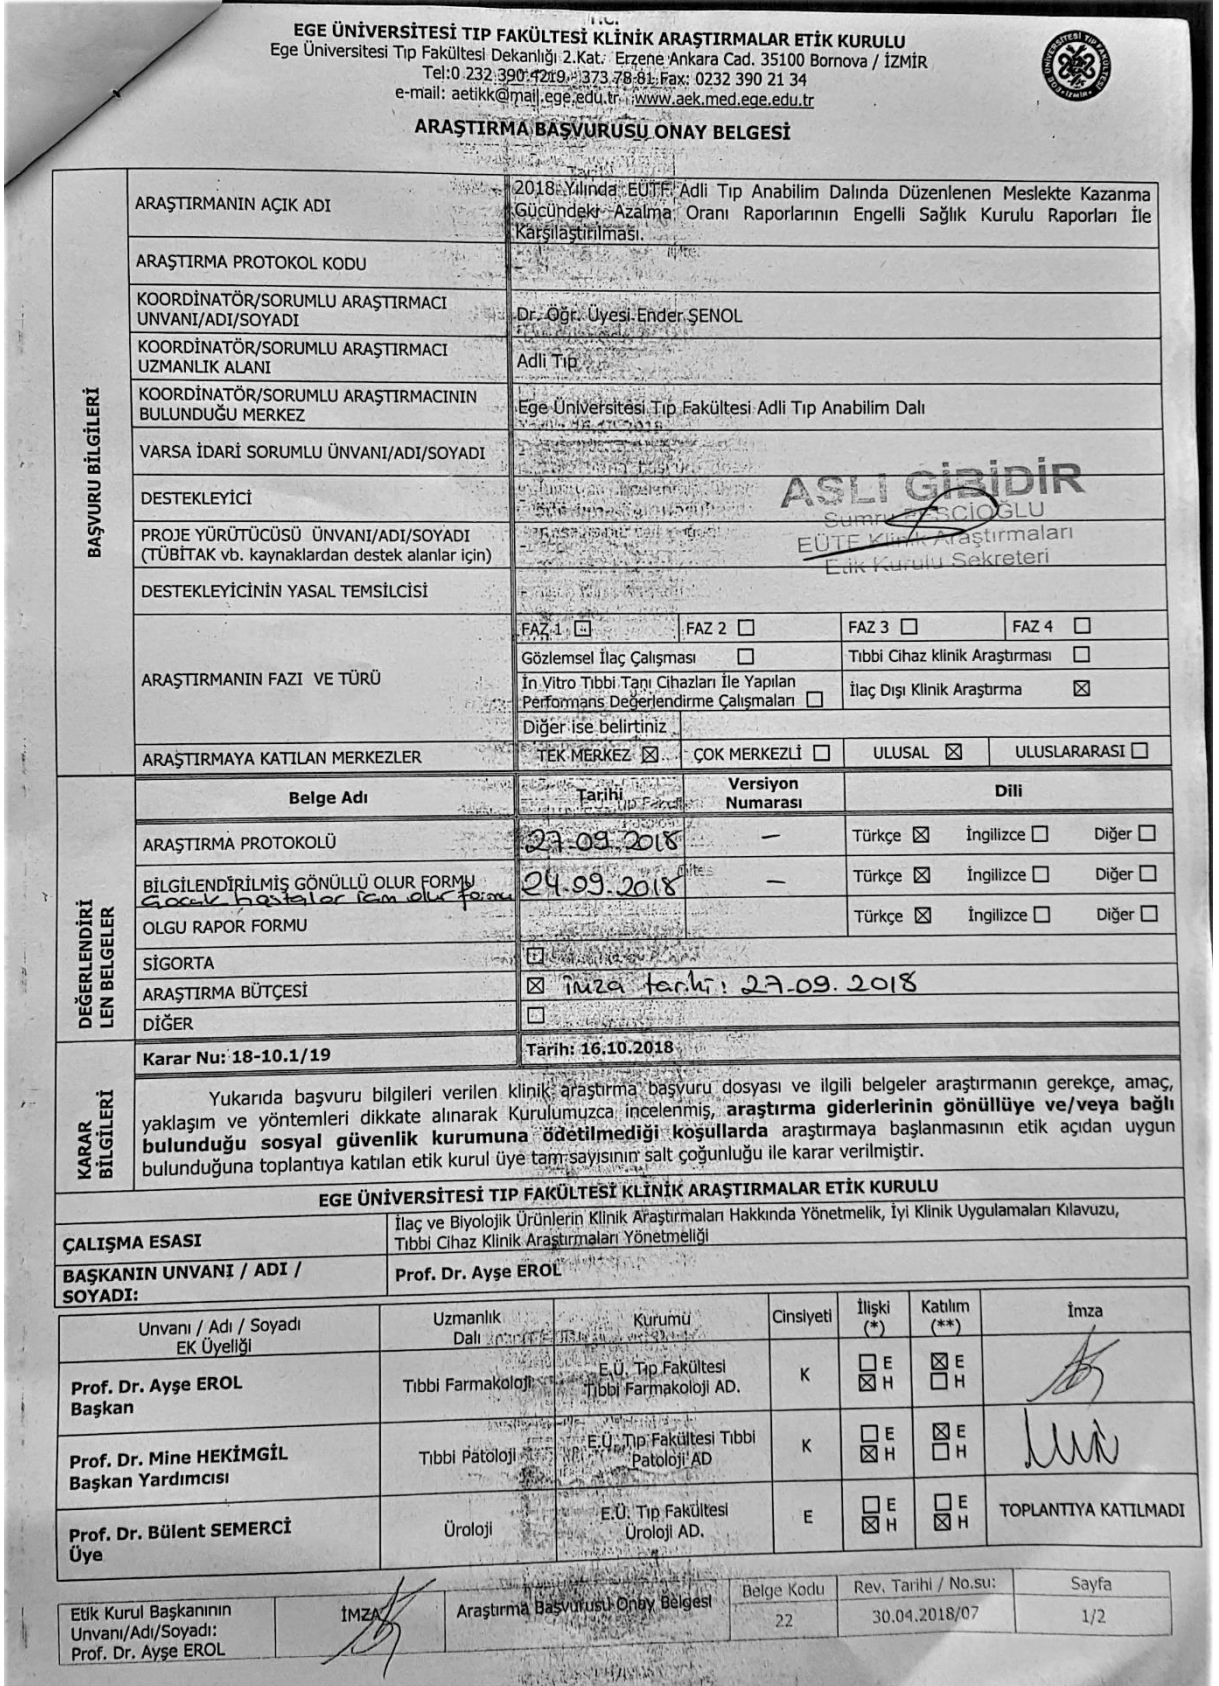 T.C.
EGE ÜNİVERSİTESİ TIP FAKÜLTESİ KLİNİK ARAŞTIRMALAR ETİK KURULU
Ege Üniversitesi Tıp Fakültesi Dekanlığı 2.Kat. Erzene Ankara Cad. 35100 Bornova / İZMİR
Tel:0 232 390 4219 - 373 78 81 Fax: 0232 390 21 34
e-mail: aetikk@mail.ege.edu.tr www.aek.med.ege.edu.tr
ARAŞTIRMA BAŞVURUSU ONAY BELGESİ
BAŞVURU BİLGİLERİ
ARAŞTIRMANIN AÇIK ADI
2018 Yılında EÜTF Adli Tıp Anabilim Dalında Düzenlenen Meslekte Kazanma
Gücündeki Azalma Oranı Raporlarının Engelli Sağlık Kurulu Raporları İle
Karşılaştırılması.
ARAŞTIRMA PROTOKOL KODU
KOORDİNATÖR/SORUMLU ARAŞTIRMACI
UNVANI/ADI/SOYADI
Dr. Öğr. Üyesi Ender ŞENOL
KOORDİNATÖR/SORUMLU ARAŞTIRMACI
UZMANLIK ALANI
Adli Tıp
KOORDİNATÖR/SORUMLU ARAŞTIRMACININ
BULUNDUĞU MERKEZ
Ege Üniversitesi Tıp Fakültesi Adli Tıp Anabilim Dalı
VARSA İDARİ SORUMLU ÜNVANI/ADI/SOYADI
DESTEKLEYİCİ
ASLI GİBİDİR
Sumru
EÜTF Klinik Araştırmaları
Etik Kurulu Sekreteri
PROJE YÜRÜTÜCÜSÜ ÜNVANI/ADI/SOYADI
(TÜBİTAK vb. kaynaklardan destek alanlar için)
DESTEKLEYİCİNİN YASAL TEMSİLCİSİ
ARAŞTIRMANIN FAZI VE TÜRÜ
FAZ 1 ☐ FAZ 2 ☐ FAZ 3 ☐ FAZ 4 ☐
Gözlemsel İlaç Çalışması ☐ Tıbbi Cihaz klinik Araştırması ☐
İn Vitro Tıbbi Tanı Cihazları İle Yapılan
Performans Değerlendirme Çalışmaları ☐ İlaç Dışı Klinik Araştırma ☒
Diğer ise belirtiniz
ARAŞTIRMAYA KATILAN MERKEZLER
TEK MERKEZ ☒ ÇOK MERKEZLİ ☐ ULUSAL ☒ ULUSLARARASI ☐
DEĞERLENDİRİ
LEN BELGELER
Belge Adı Tarihi Versiyon
Numarası Dili
ARAŞTIRMA PROTOKOLÜ 27.09.2018 – Türkçe ☒ İngilizce ☐ Diğer ☐
BİLGİLENDİRİLMİŞ GÖNÜLLÜ OLUR FORMU 24.09.2018 – Türkçe ☒ İngilizce ☐ Diğer ☐
Çocuk hastalar için olur formu
OLGU RAPOR FORMU Türkçe ☒ İngilizce ☐ Diğer ☐
SİGORTA ☐
ARAŞTIRMA BÜTÇESİ ☒ imza tarihi: 27.09.2018
DİĞER ☐
KARAR
BİLGİLERİ
Karar Nu: 18-10.1/19 Tarih: 16.10.2018
Yukarıda başvuru bilgileri verilen klinik araştırma başvuru dosyası ve ilgili belgeler araştırmanın gerekçe, amaç,
yaklaşım ve yöntemleri dikkate alınarak Kurulumuzca incelenmiş, araştırma giderlerinin gönüllüye ve/veya bağlı
bulunduğu sosyal güvenlik kurumuna ödetilmediği koşullarda araştırmaya başlanmasının etik açıdan uygun
bulunduğuna toplantıya katılan etik kurul üye tam sayısının salt çoğunluğu ile karar verilmiştir.
EGE ÜNİVERSİTESİ TIP FAKÜLTESİ KLİNİK ARAŞTIRMALAR ETİK KURULU
ÇALIŞMA ESASI
İlaç ve Biyolojik Ürünlerin Klinik Araştırmaları Hakkında Yönetmelik, İyi Klinik Uygulamaları Kılavuzu,
Tıbbi Cihaz Klinik Araştırmaları Yönetmeliği
BAŞKANIN UNVANI / ADI /
SOYADI:
Prof. Dr. Ayşe EROL
Unvanı / Adı / Soyadı
EK Üyeliği
Uzmanlık
Dalı
Kurumu
Cinsiyeti
İlişki
(*)
Katılım
(**)
İmza
Prof. Dr. Ayşe EROL
Başkan
Tıbbi Farmakoloji
E.Ü. Tıp Fakültesi
Tıbbi Farmakoloji AD.
K
☐ E
☒ H
☒ E
☐ H
Prof. Dr. Mine HEKİMGİL
Başkan Yardımcısı
Tıbbi Patoloji
E.Ü. Tıp Fakültesi Tıbbi
Patoloji AD
K
☐ E
☒ H
☒ E
☐ H
Prof. Dr. Bülent SEMERCİ
Üye
Üroloji
E.Ü. Tıp Fakültesi
Üroloji AD.
E
☐ E
☒ H
☐ E
☒ H
TOPLANTIYA KATILMADI
Etik Kurul Başkanının
Unvanı/Adı/Soyadı:
Prof. Dr. Ayşe EROL
İMZA
Araştırma Başvurusu Onay Belgesi
Belge Kodu
22
Rev. Tarihi / No.su:
30.04.2018/07
Sayfa
1/2